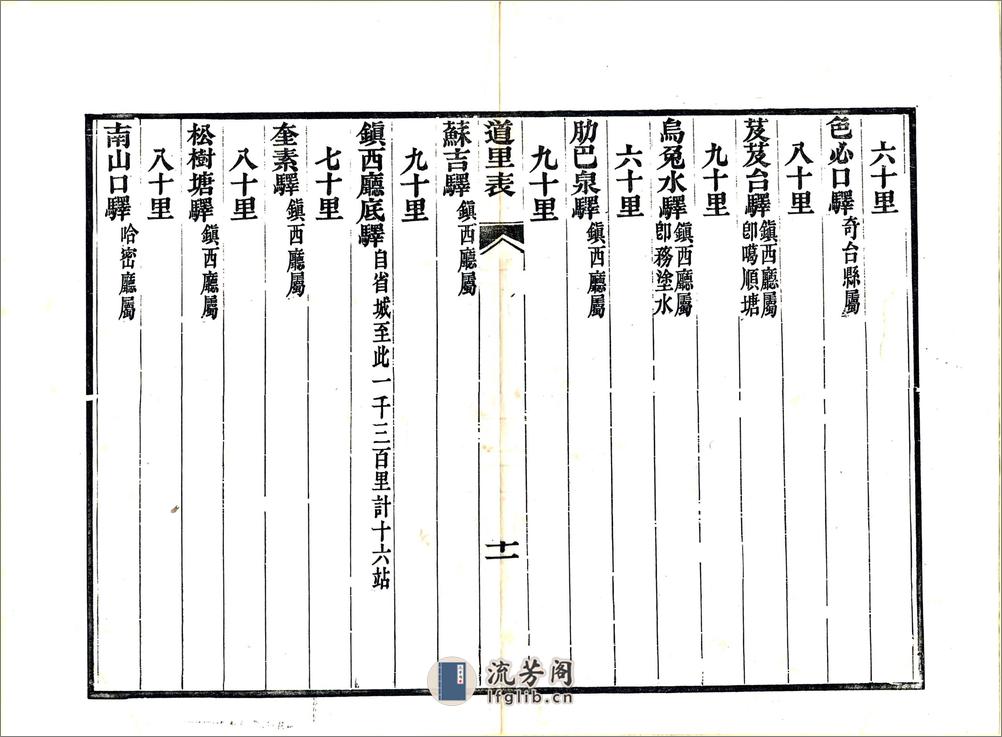 六十里
色必口驛奇台縣屬
八十里
芨芨台驛鎮西廳屬
卽噶順塘
九十里
烏兔水驛鎮西廳屬
卽務塗水
六十里
肋巴泉驛鎮西廳屬
九十里
道里表
十一
蘇吉驛鎮西廳屬
九十里
鎮西廳底驛自省城至此一千三百里計十六站
七十里
奎素驛鎮西廳屬
八十里
松樹塘驛鎮西廳屬
八十里
南山口驛哈密廳屬
流芳阁
lfglib.cn